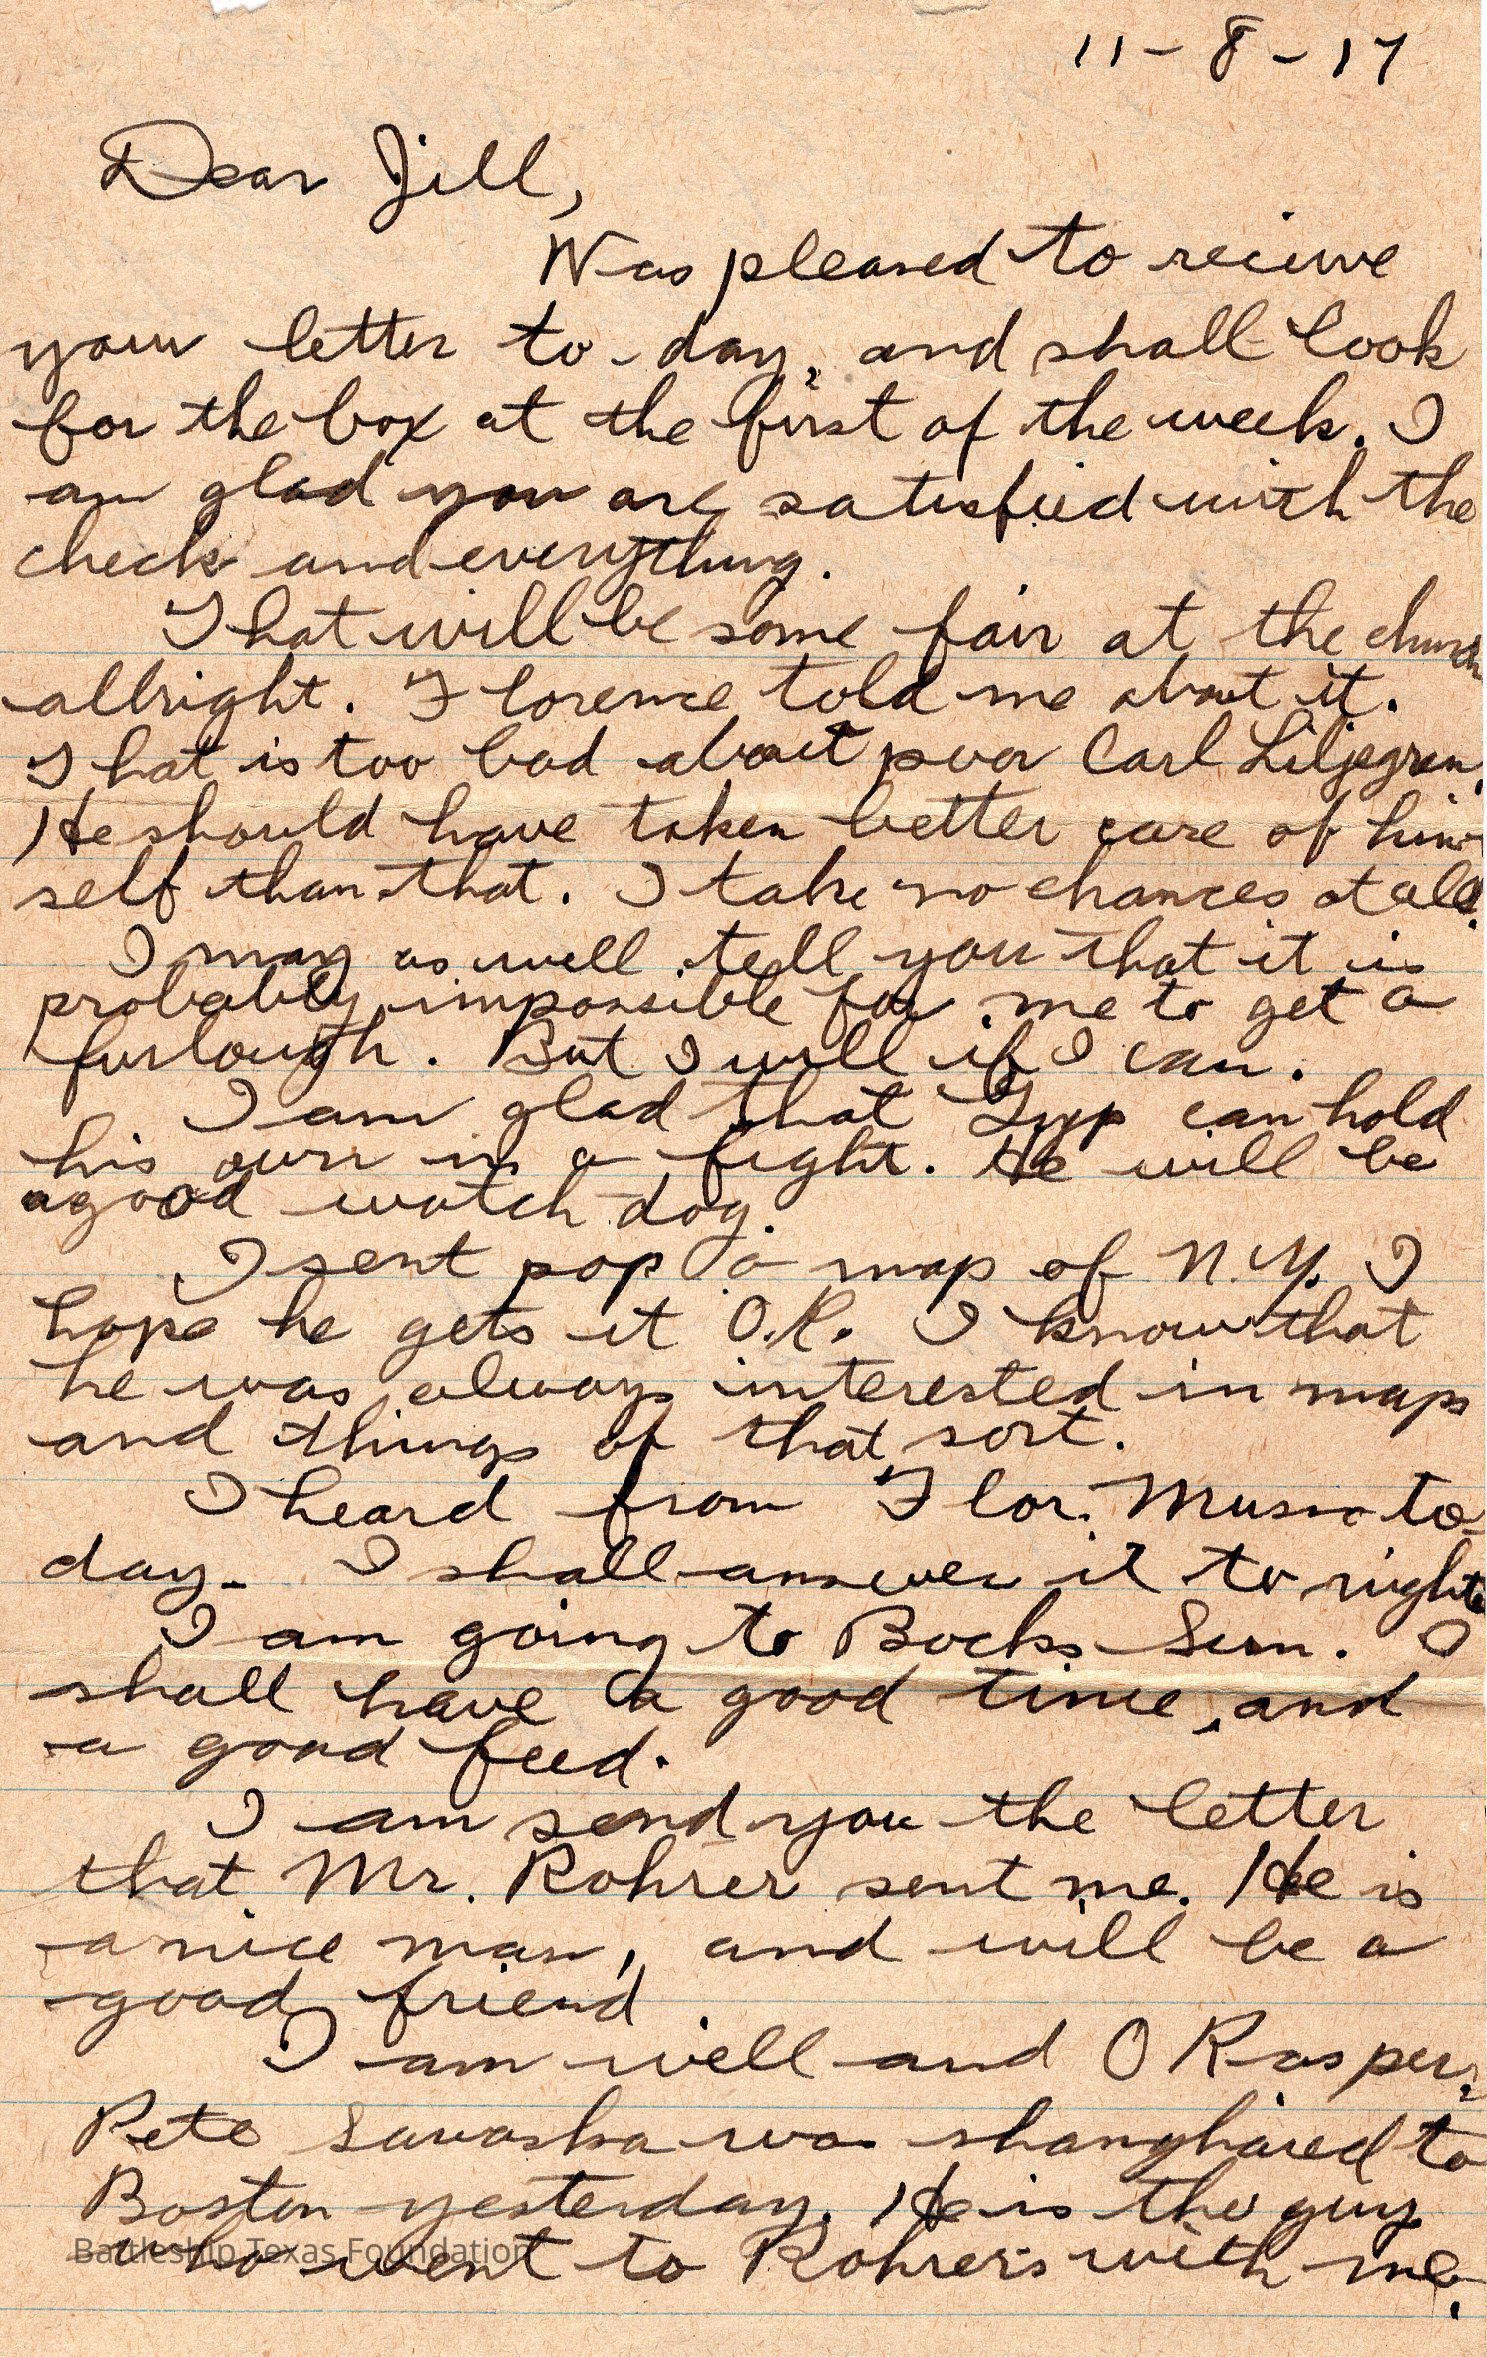 11-8-17
Dear Jill,
Was pleased to recieve
your letter to-day, and shall look
for the box at the first of the week. I
am glad you are satisfied with the
check and everything.
That will be some fair at the church
allright. Florence told me about it.
That is too bad about poor Carl Liljegren.
He should have taken better care of him-
self than that. I take no chances at all.
I may as well tell you that it is
probably impossible for me to get a
furlough. But I will if I can.
I am glad that Gyp can hold
his own in a fight. He will be
a good watch dog.
I sent pop a map of N.Y. I
hope he gets it O.K. I know that
he was always interested in maps
and things of that sort.
I heard from Flor. to-
day. I shall answer it to night.
I am going to Bocks Sun. I
shall have a good time, and
a good feed.
I am send you the letter
that Mr. Rohrer sent me. He is
a nice man, and will be a
good friend.
I am well and OK as per.
Pete was shanghaied to
Boston yesterday. He is the guy
who went to Rohrer's with me.
Battleship Texas Foundation